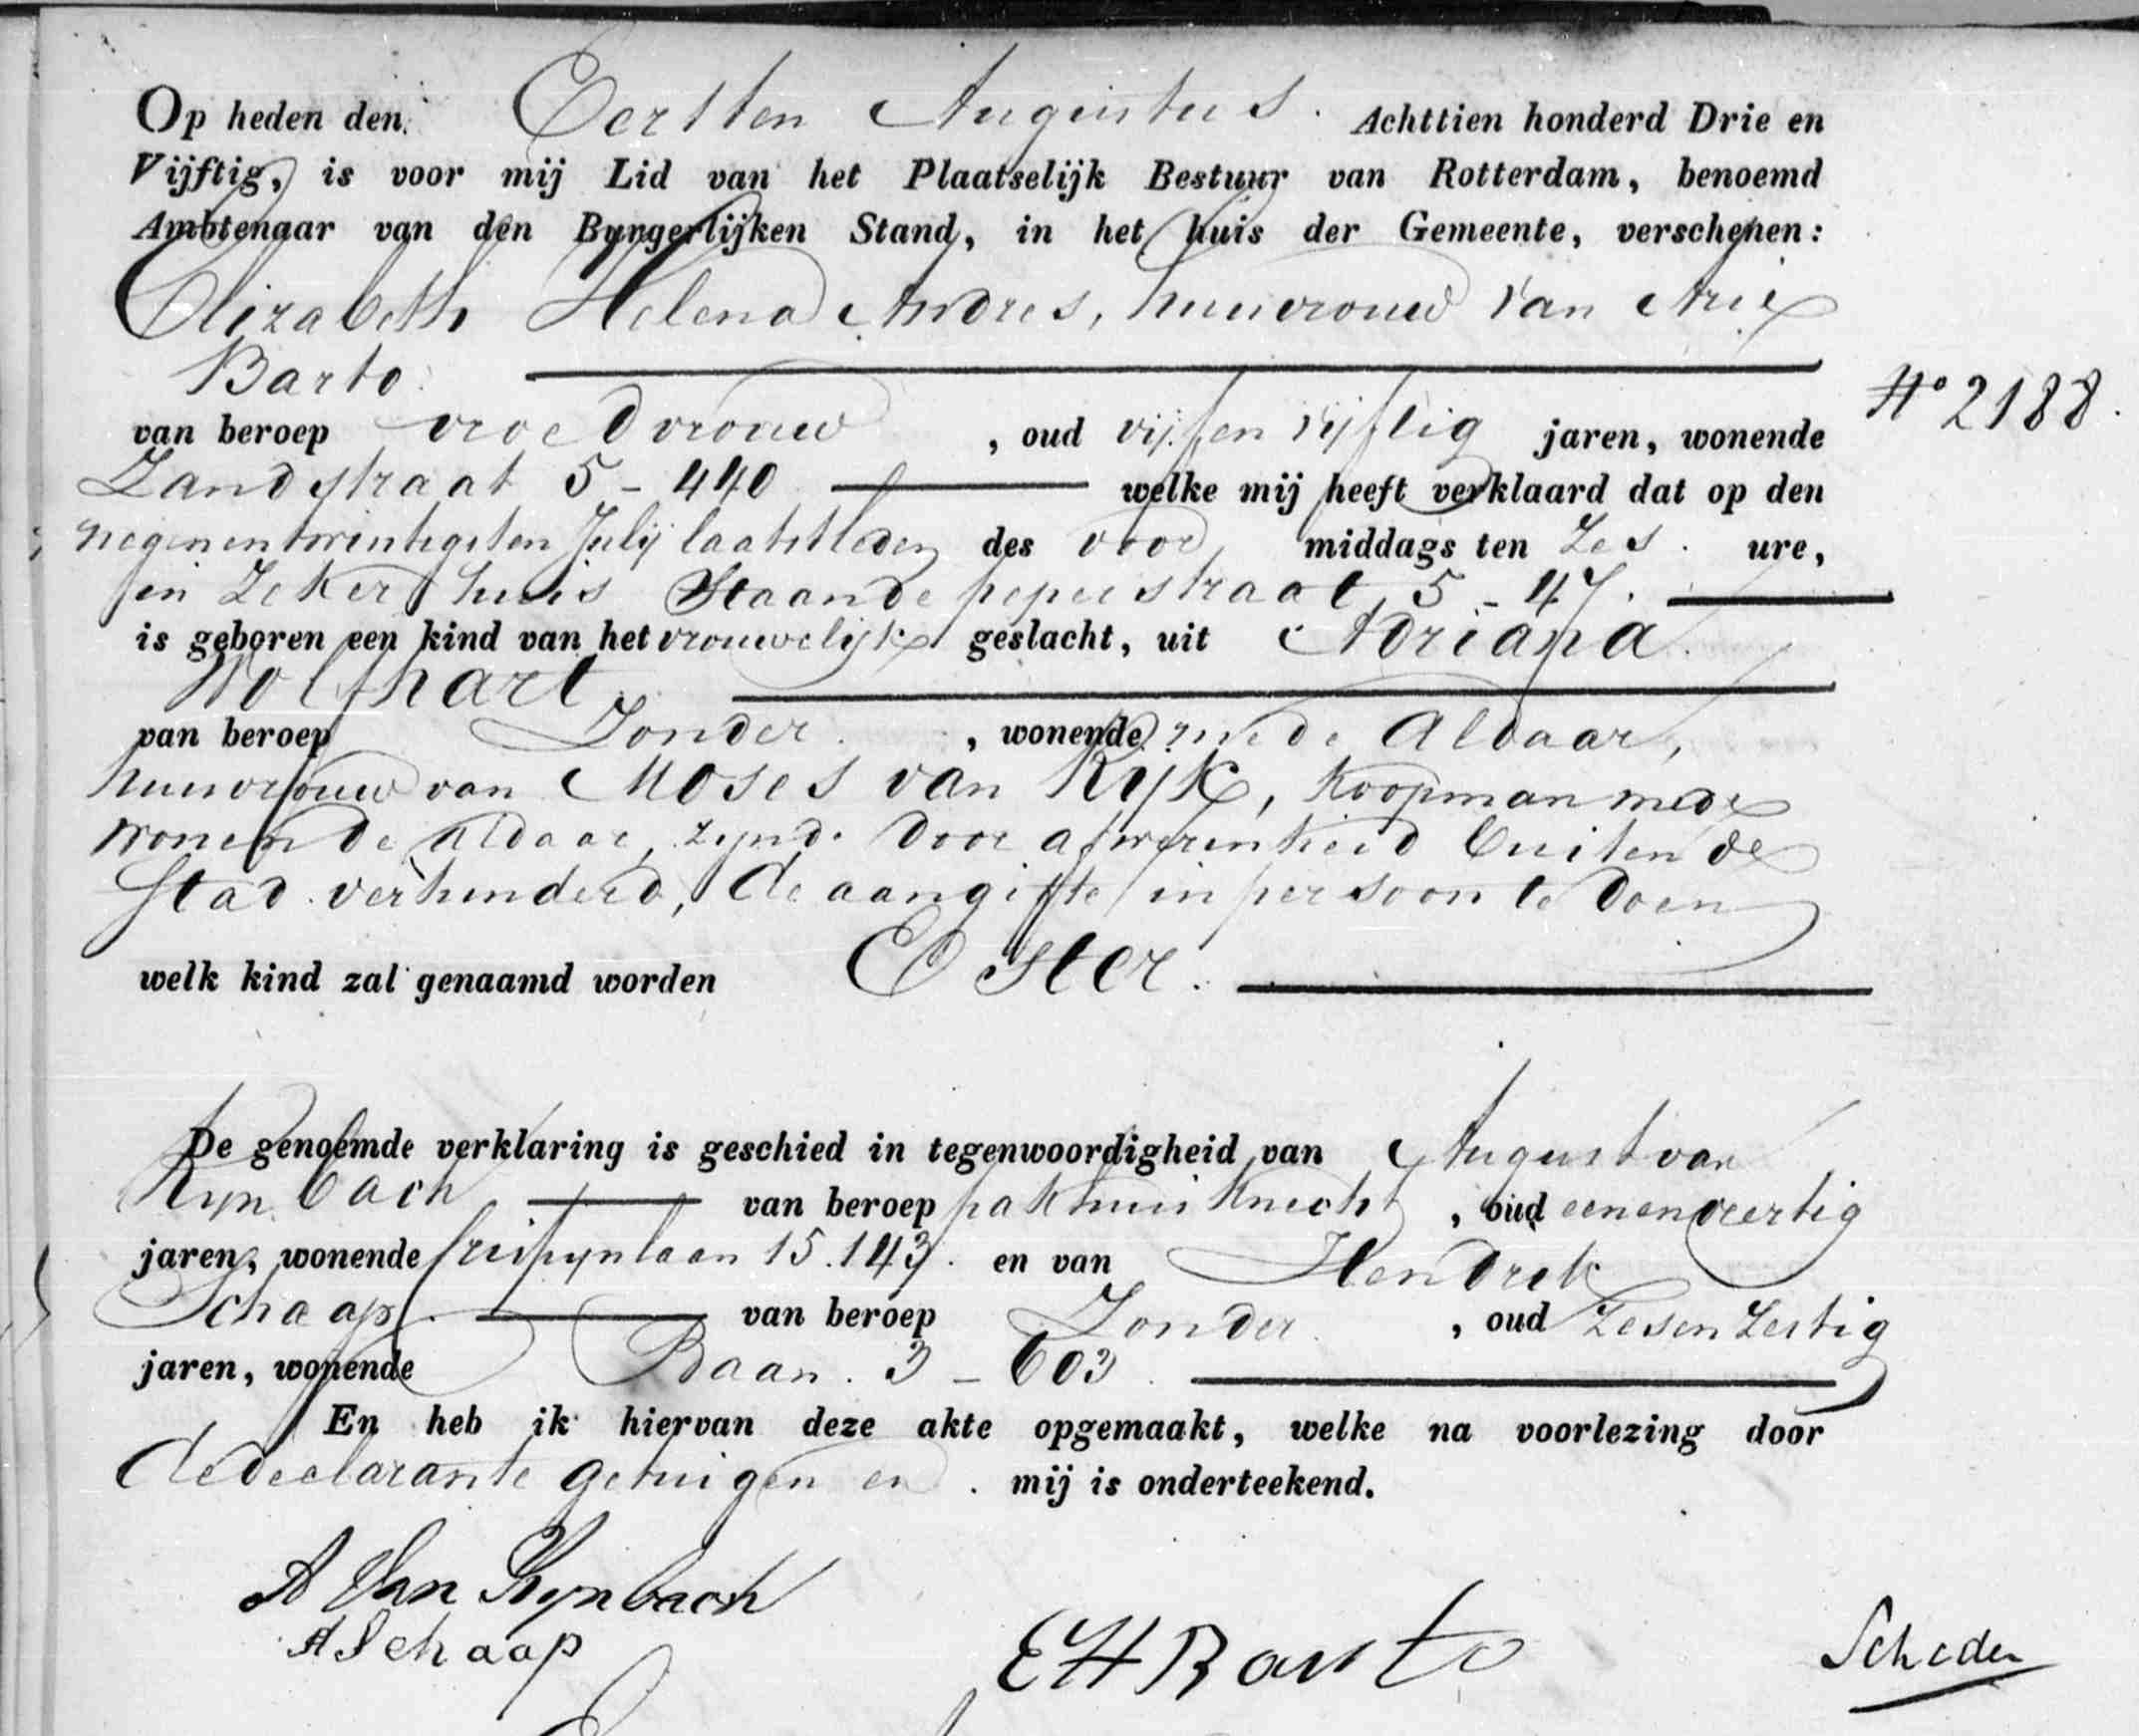 Op heden den Eersten Augustus. Achttien honderd Drie en
Vijftig, is voor mij Lid van het Plaatselijk Bestuur van Rotterdam, benoemd
Ambtenaar van den Burgerlijken Stand, in het huis der Gemeente, verschenen:
Elizabeth Helena Andres, huisvrouw van Arie
Barto
No 2188.
van beroep vroedvrouw, oud vijfenvijftig jaren, wonende
Zandstraat 5-440 welke mij heeft verklaard dat op den
negenentwintigsten Julij laatstleden des voor middags ten Zes ure,
in Zeker huis Staande peperstraat 5-47.
is geboren een kind van het vrouwelijk geslacht, uit Adriana
Wolfhart
van beroep Zonder, wonende mede Aldaar,
huisvrouw van Moses van Rijk, Koopman mede
wonende Aldaar, zynde door afwezenheid buiten de
Stad verhinderd, de aangifte in persoon te doen
welk kind zal genaamd worden Ester.
De genoemde verklaring is geschied in tegenwoordigheid van August van
Rynbach van beroep pakhuisknecht, oud eenenveertig
jaren, wonende Crispynlaan 15.143. en van Hendrik
Schaap. van beroep Zonder, oud Zesenzestig
jaren, wonende Baan. 3-603.
En heb ik hiervan deze akte opgemaakt, welke na voorlezing door
de declarante getuigen en mij is onderteekend.
A Van Rynbach
H Schaap
EH Barto